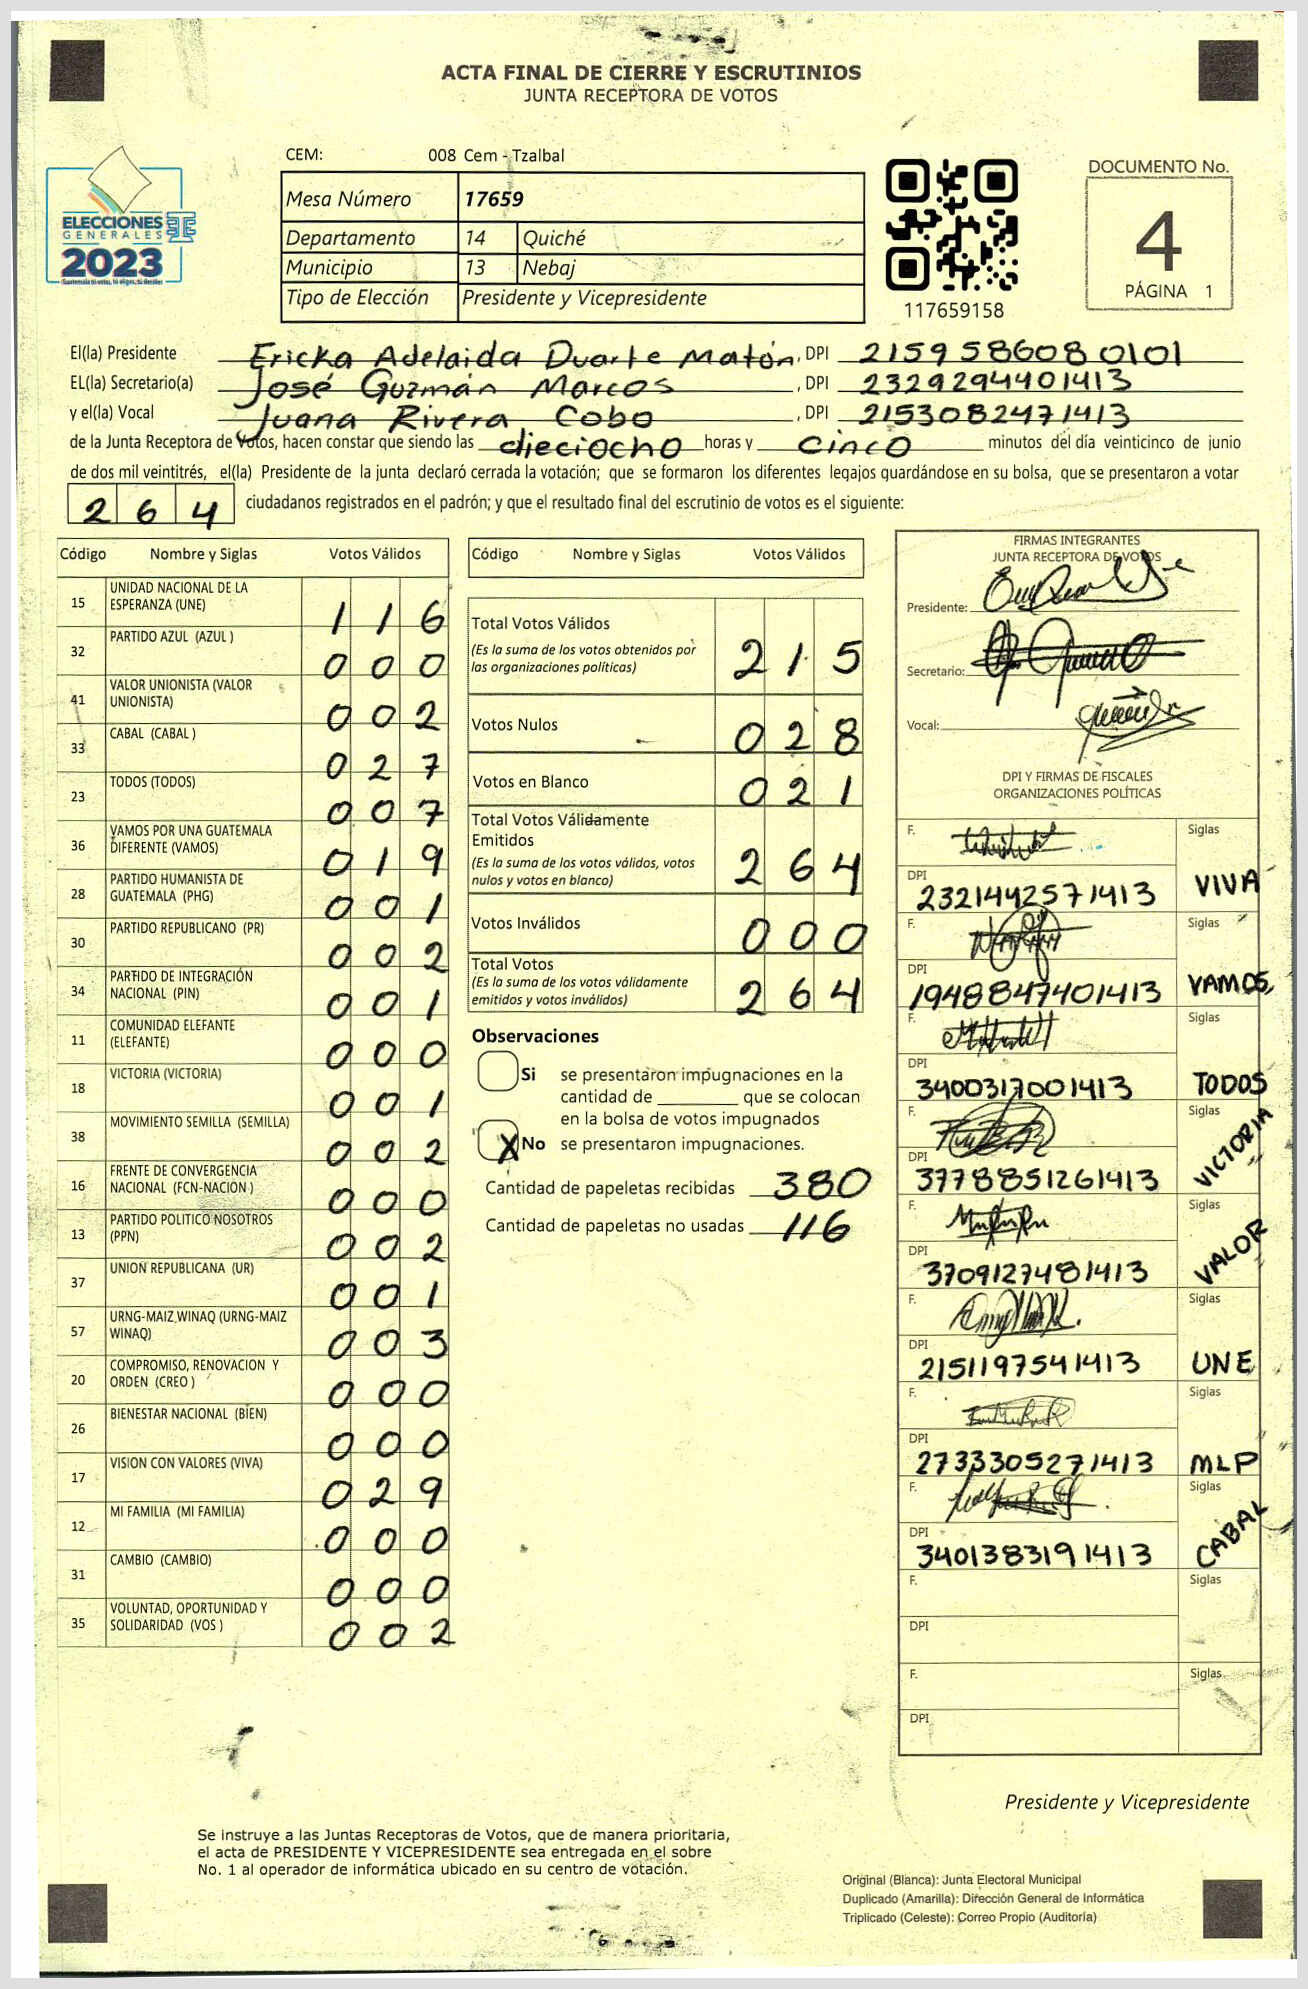 ACTA FINAL DE CIERRE Y ESCRUTINIOS
JUNTA RECEPTORA DE VOTOS
CEM: 008 Cem - Tzalbal
Mesa Número 17659
Departamento 14 Quiché
Municipio 13 Nebaj
Tipo de Elección Presidente y Vicepresidente
ELECCIONES
GENERALES
2023
117659158
DOCUMENTO No.
4
PÁGINA 1
El(la) Presidente Ericka Adelaida Duarte Matón, DPI 2159586080101
EL(la) Secretario(a) José Guzmán Marcos, DPI 2329294401413
y el(la) Vocal Juana Rivera Cobo, DPI 2153082471413
de la Junta Receptora de Votos, hacen constar que siendo las dieciocho horas y cinco minutos del día veinticinco de junio
de dos mil veintitrés, el(la) Presidente de la junta declaró cerrada la votación; que se formaron los diferentes legajos guardándose en su bolsa, que se presentaron a votar
264 ciudadanos registrados en el padrón; y que el resultado final del escrutinio de votos es el siguiente:
Código Nombre y Siglas Votos Válidos
15 UNIDAD NACIONAL DE LA ESPERANZA (UNE) 116
32 PARTIDO AZUL (AZUL ) 000
41 VALOR UNIONISTA (VALOR UNIONISTA) 002
33 CABAL (CABAL ) 027
23 TODOS (TODOS) 007
36 VAMOS POR UNA GUATEMALA DIFERENTE (VAMOS) 019
28 PARTIDO HUMANISTA DE GUATEMALA (PHG) 001
30 PARTIDO REPUBLICANO (PR) 002
34 PARTIDO DE INTEGRACIÓN NACIONAL (PIN) 001
11 COMUNIDAD ELEFANTE (ELEFANTE) 000
18 VICTORIA (VICTORIA) 001
38 MOVIMIENTO SEMILLA (SEMILLA) 002
16 FRENTE DE CONVERGENCIA NACIONAL (FCN-NACION ) 000
13 PARTIDO POLITICO NOSOTROS (PPN) 002
37 UNION REPUBLICANA (UR) 001
57 URNG-MAIZ WINAQ (URNG-MAIZ WINAQ) 003
20 COMPROMISO, RENOVACION Y ORDEN (CREO ) 000
26 BIENESTAR NACIONAL (BIEN) 000
17 VISION CON VALORES (VIVA) 029
12 MI FAMILIA (MI FAMILIA) 000
31 CAMBIO (CAMBIO) 000
35 VOLUNTAD, OPORTUNIDAD Y SOLIDARIDAD (VOS ) 002
Código Nombre y Siglas Votos Válidos
Total Votos Válidos 215
(Es la suma de los votos obtenidos por
las organizaciones políticas)
Votos Nulos 028
Votos en Blanco 021
Total Votos Válidamente
Emitidos 264
(Es la suma de los votos válidos, votos
nulos y votos en blanco)
Votos Inválidos 000
Total Votos 264
(Es la suma de los votos válidamente
emitidos y votos inválidos)
Observaciones
Si se presentaron impugnaciones en la
cantidad de ________ que se colocan
en la bolsa de votos impugnados
X No se presentaron impugnaciones.
Cantidad de papeletas recibidas 380
Cantidad de papeletas no usadas 116
FIRMAS INTEGRANTES
JUNTA RECEPTORA DE VOTOS
Presidente:
Secretario:
Vocal:
DPI Y FIRMAS DE FISCALES
ORGANIZACIONES POLÍTICAS
F. Siglas
DPI 2321442571413 VIVA
F. Siglas
DPI 1948847401413 VAMOS,
F. Siglas
DPI 3400317001413 TODOS
F. Siglas
DPI 3778851261413 VICTORIA
F. Siglas
DPI 3709127481413 VALOR
F. Siglas
DPI 2151197541413 UNE
F. Siglas
DPI 2733305271413 MLP
F. Siglas
DPI 3401383191413 CABAL
F. Siglas
DPI
F. Siglas
DPI
Presidente y Vicepresidente
Se instruye a las Juntas Receptoras de Votos, que de manera prioritaria,
el acta de PRESIDENTE Y VICEPRESIDENTE sea entregada en el sobre
No. 1 al operador de informática ubicado en su centro de votación.
Original (Blanca): Junta Electoral Municipal
Duplicado (Amarilla): Dirección General de Informática
Triplicado (Celeste): Correo Propio (Auditoría)